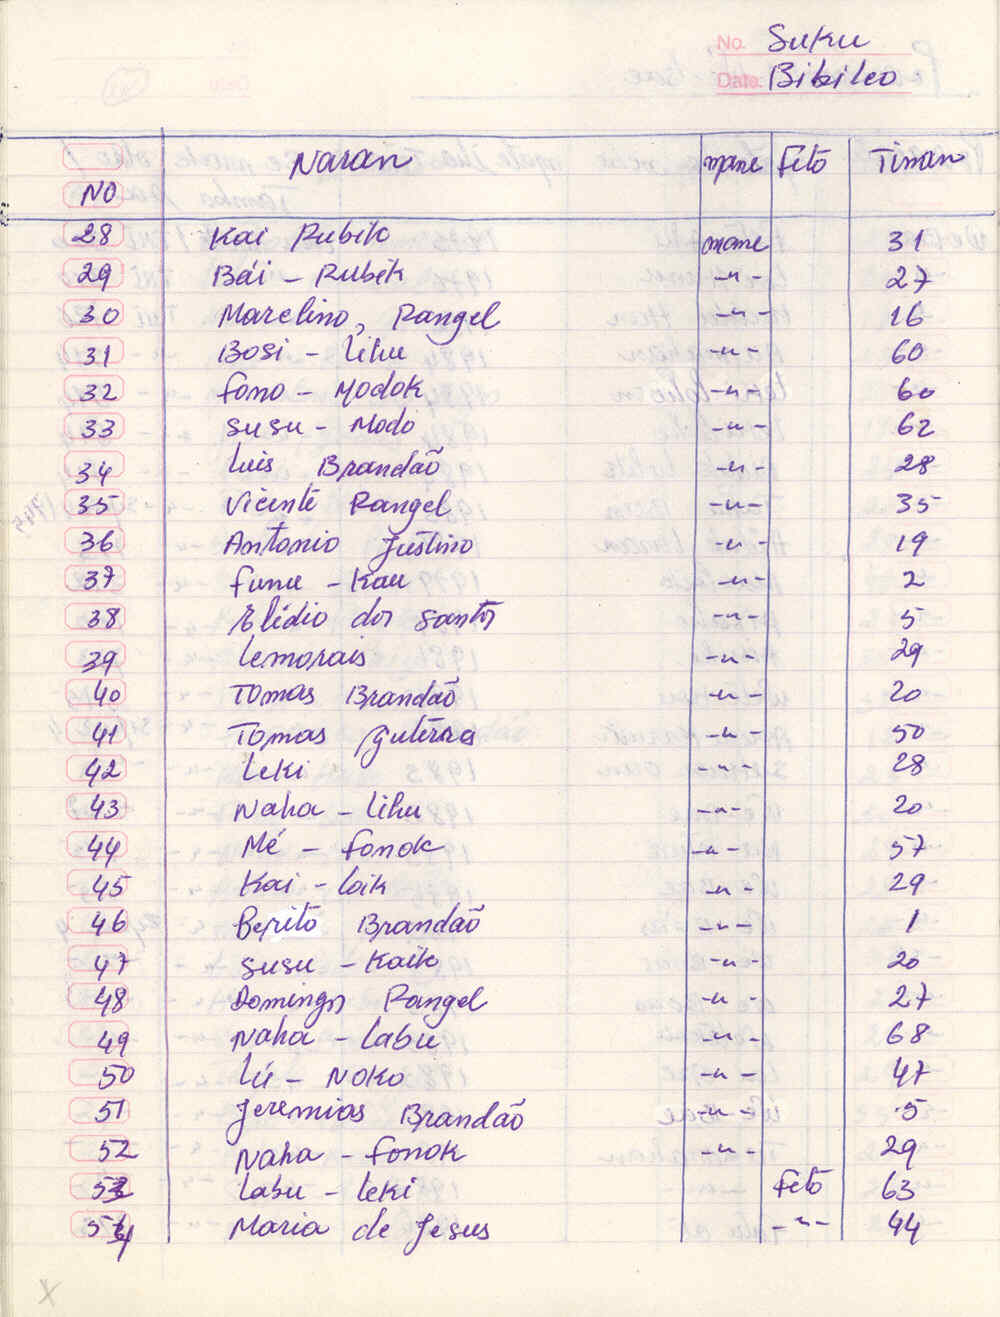 No. Suku
Date. Bibileo
NO Naran mane Feto Tinan
28 Kai Rubik mane 31
29 Bái - Rubik -"- 27
30 Marcelino, Rangel -"- 16
31 Bosi - Lihu -"- 60
32 Fono - Modok -"- 60
33 Susu - Modo -"- 62
34 Luis Brandão -"- 28
35 Vicente Rangel -"- 35
36 Antonio Justino -"- 19
37 Funu - Kau -"- 2
38 Elidio dos Santos -"- 5
39 Lemorais -"- 29
40 Tomas Brandão -"- 20
41 Tomas Guterra -"- 50
42 Leki -"- 28
43 Naha - Lihu -"- 20
44 Mé - Fonok -"- 57
45 Kai - Loik -"- 29
46 Bepito Brandão -"- 1
47 Susu - Kaik -"- 20
48 Domingos Rangel -"- 27
49 Naha - Labu -"- 68
50 Noko -"- 47
51 Jeremias Brandão -"- 5
52 Naha - Fonok -"- 29
53 Labu - Leki Feto 63
54 Maria de Jesus -"- 44